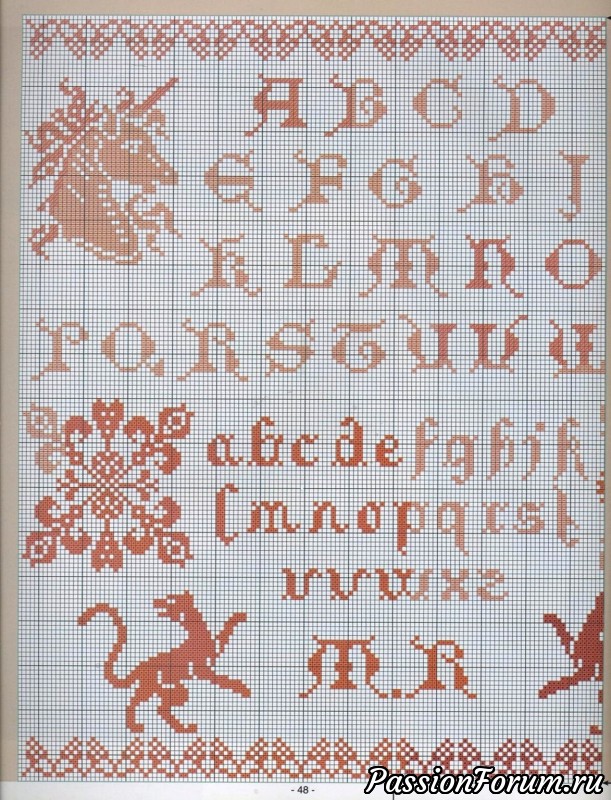 A B C D
E F G H J
K L M N O
P Q R S T U V W
abcdefghjk
lmnopqrst
uvwxz
M.R
- 48 -
PassionForum.ru